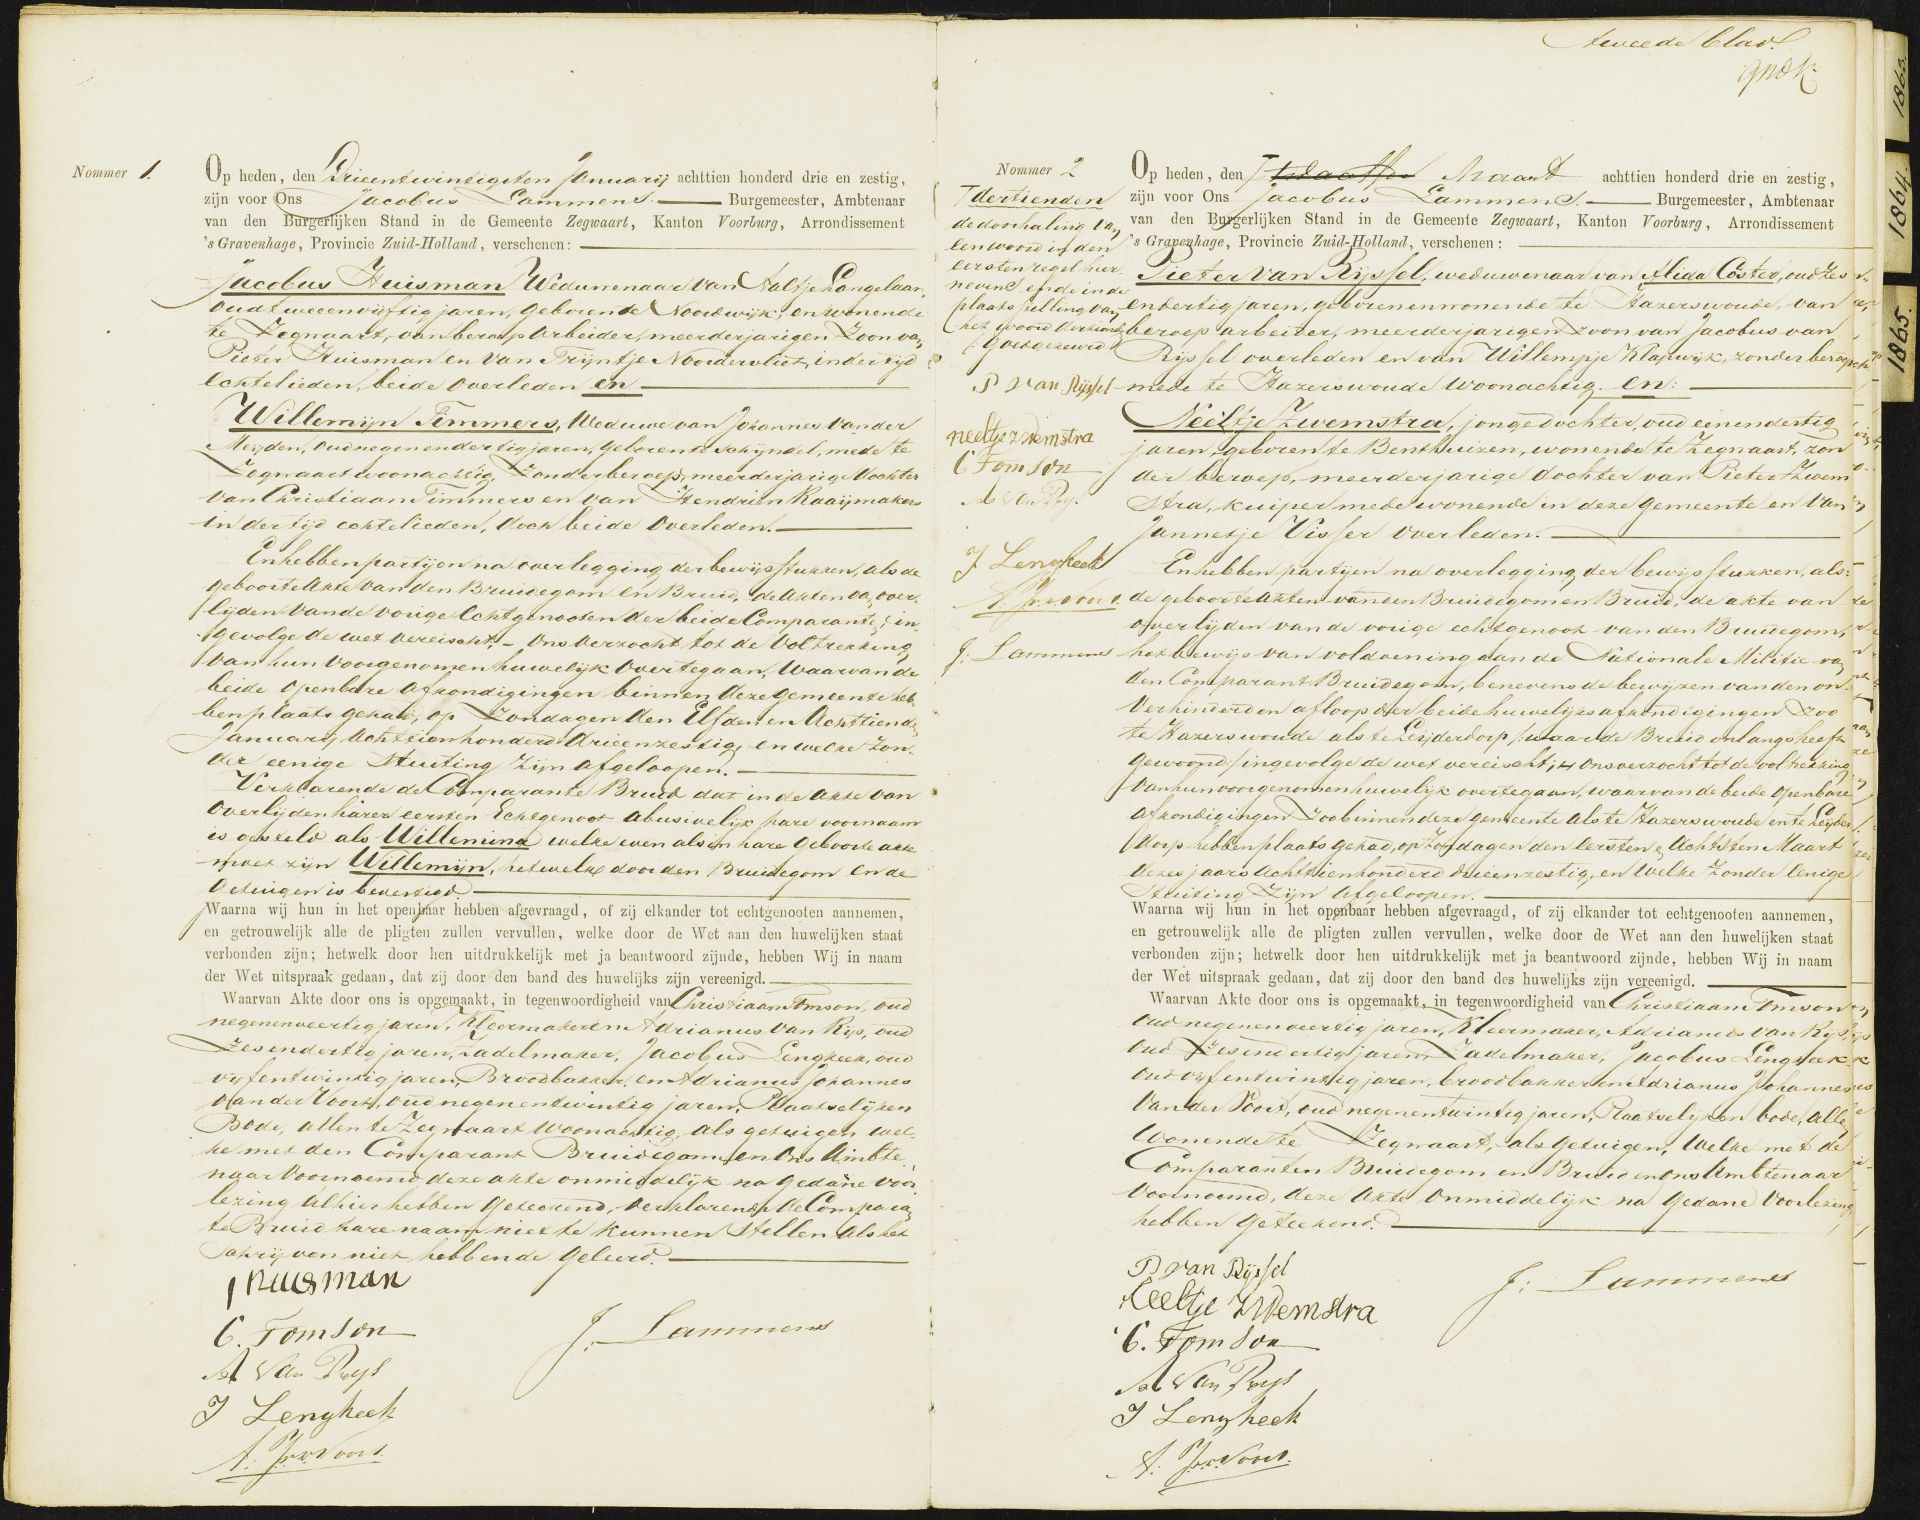 Nommer 1.
Op heden, den Drieentwintigsten Januarij achttien honderd drie en zestig,
zijn voor Ons Jacobus Lammens. Burgemeester, Ambtenaar
van den Burgerlijken Stand in de Gemeente Zegwaart, Kanton Voorburg, Arrondissement
's Gravenhage, Provincie Zuid-Holland, verschenen:
Jacobus Huisman Weduwenaar van Aaltje Langelaan,
oud tweeenvijftig jaren, geboren te Noordwijk, en wonende
te Zegwaart, van beroep Arbeider, meerderjarigen Zoon van
Pieter Huisman en van Trijntje Noordervliet, in der tijd
Echtelieden, beide overleden en
Willemijn Timmers, Weduwe van Johannes van der
Meijden, oud negenendertig jaren, geboren te Schijndel, mede te
Zegwaart woonachtig, Zonder beroep, meerderjarige Dochter
van Christiaan Timmers en van Hendrien Raaijmakers
in der tijd echtelieden, doch beide overleden.
En hebben partijen na overlegging der bewijsstukken, als de
geboorte Akte van den Bruidegom en Bruid, de Akten van over-
lijden van de vorige Echtgenooten der beide Comparanten, in-
gevolge de wet vereischt, ons verzocht tot de Voltrekking
van hun voorgenomen huwelijk overtegaan, waarvan de
beide openbare afkondigingen binnen deze gemeente heb-
ben plaats gehad, op Zondagen den Elfden en Achttiende
Januarij Achttienhonderd drieenzestig, en welke zon-
der eenige stuiting zijn afgeloopen.
Verklarende de Comparante Bruid dat in de Akte van
overlijden harer eersten Echtgenoot abusivelijk hare voornaam
is gesteld als Willemina welke even als in hare geboorte akte
moet zijn Willemijn, hetwelk door den Bruidegom en de
Getuigen is bevestigd.
Waarna wij hun in het openbaar hebben afgevraagd, of zij elkander tot echtgenooten aannemen,
en getrouwelijk alle de pligten zullen vervullen, welke door de Wet aan den huwelijken staat
verbonden zijn; hetwelk door hen uitdrukkelijk met ja beantwoord zijnde, hebben Wij in naam
der Wet uitspraak gedaan, dat zij door den band des huwelijks zijn vereenigd.
Waarvan Akte door ons is opgemaakt, in tegenwoordigheid van Christiaan Tomson, oud
negenenveertig jaren, Kleermaker en Adrianus van Rijs, oud
Zesendertig jaren, Zadelmaker, Jacobus Lengkeek, oud
vijfentwintig jaren, Broodbakker, en Adrianus Johannes
van der Voort, oud negenentwintig jaren, Plaatselijken
Bode, allen te Zegwaart woonachtig, als getuigen, wel-
ke met den Comparant Bruidegom, en Ons Ambte-
naar voornoemd, deze akte onmiddelijk na gedane voor-
lezing alhier hebben geteekend, verklarende de Comparan-
te Bruid hare naam niet te kunnen stellen als het
Schrijven niet hebbende geleerd.
J Huisman
C. Tomson
J. Lammens
A Van Rijs
J Lengkeek
A. J. v. d. Voort.
tweede blad.
Nommer 2
Op heden, den Maart achttien honderd drie en zestig,
zijn voor Ons Jacobus Lammens. Burgemeester, Ambtenaar
van den Burgerlijken Stand in de Gemeente Zegwaart, Kanton Voorburg, Arrondissement
's Gravenhage, Provincie Zuid-Holland, verschenen:
Pieter van Rijssel, weduwenaar van Alida Coster, oud Zes
en dertig jaren, geboren en wonende te Hazerswoude, van
beroep arbeider, meerderjarigen zoon van Jacobus van
Rijssel overleden en van Willempje Klapwijk, zonder beroep
mede te Hazerswoude woonachtig. en:
Neeltje Zwemstra, jongedochter, oud eenendertig
jaren, geboren te Benthuizen, wonende te Zegwaart, zon
der beroep, meerderjarige dochter van Pieter Zwem
stra, kuiper mede wonende in deze gemeente en van
Jannetje Visser overleden.
En hebben partijen na overlegging der bewijsstukken, als:
de geboorte Akten van den Bruidegom en Bruid, de akte van
overlijden van de vorige echtgenoot van den Bruidegom,
het bewijs van voldoening aan de Nationale Militie van
den Comparant Bruidegom, benevens de bewijzen van den on-
verhinderden afloop der beide huwelijksafkondigingen zoo
te Hazerswoude als te Leijderdorp (waar de Bruid onlangs heeft
gewoond) ingevolge de wet vereischt, ons verzocht tot de voltrekking
van hun voorgenomen huwelijk overtegaan, waarvan de beide openbare
afkondigingen Zoo binnen deze gemeente als te Hazerswoude en te Leijder
dorp hebben plaats gehad, op Zondagen den Eersten en Achtsten Maart
dezes jaars Achttienhonderd drieenzestig, en welke Zonder Eenige
Stuiting Zijn afgeloopen.
Waarna wij hun in het openbaar hebben afgevraagd, of zij elkander tot echtgenooten aannemen,
en getrouwelijk alle de pligten zullen vervullen, welke door de Wet aan den huwelijken staat
verbonden zijn; hetwelk door hen uitdrukkelijk met ja beantwoord zijnde, hebben Wij in naam
der Wet uitspraak gedaan, dat zij door den band des huwelijks zijn vereenigd.
Waarvan Akte door ons is opgemaakt, in tegenwoordigheid van Christiaan Tomson
oud negenenveertig jaren, Kleermaker, Adrianus van Rijs,
oud Zesendertig jaren, Zadelmaker, Jacobus Lengkeek
oud vijfentwintig jaren, broodbakker en Adrianus Johannes
van der Voort, oud negenentwintig jaren, Plaatselijken bode, allen
wonende te Zegwaart, als getuigen, welke met de
Comparanten Bruidegom en Bruid en ons Ambtenaar
voornoemd, deze Akte onmiddelijk na gedane voorlezing
hebben geteekend.
P van Rijssel
Neeltje Zwemstra
J. Lammens
C. Tomson
A Van Rijs
J Lengkeek
A. J. v. d. Voort.
dertienden
de doorhaling van
een woord in den
eersten regel hier
nevens en de in de
plaatsstelling van
het woord dertiende
goedgekeurd
P van Rijssel
neeltje zwemstra
C Tomson
A Van Rijs
J Lengkeek
A. J. v. d. Voort.
J. Lammens
1863.
1864.
1865.